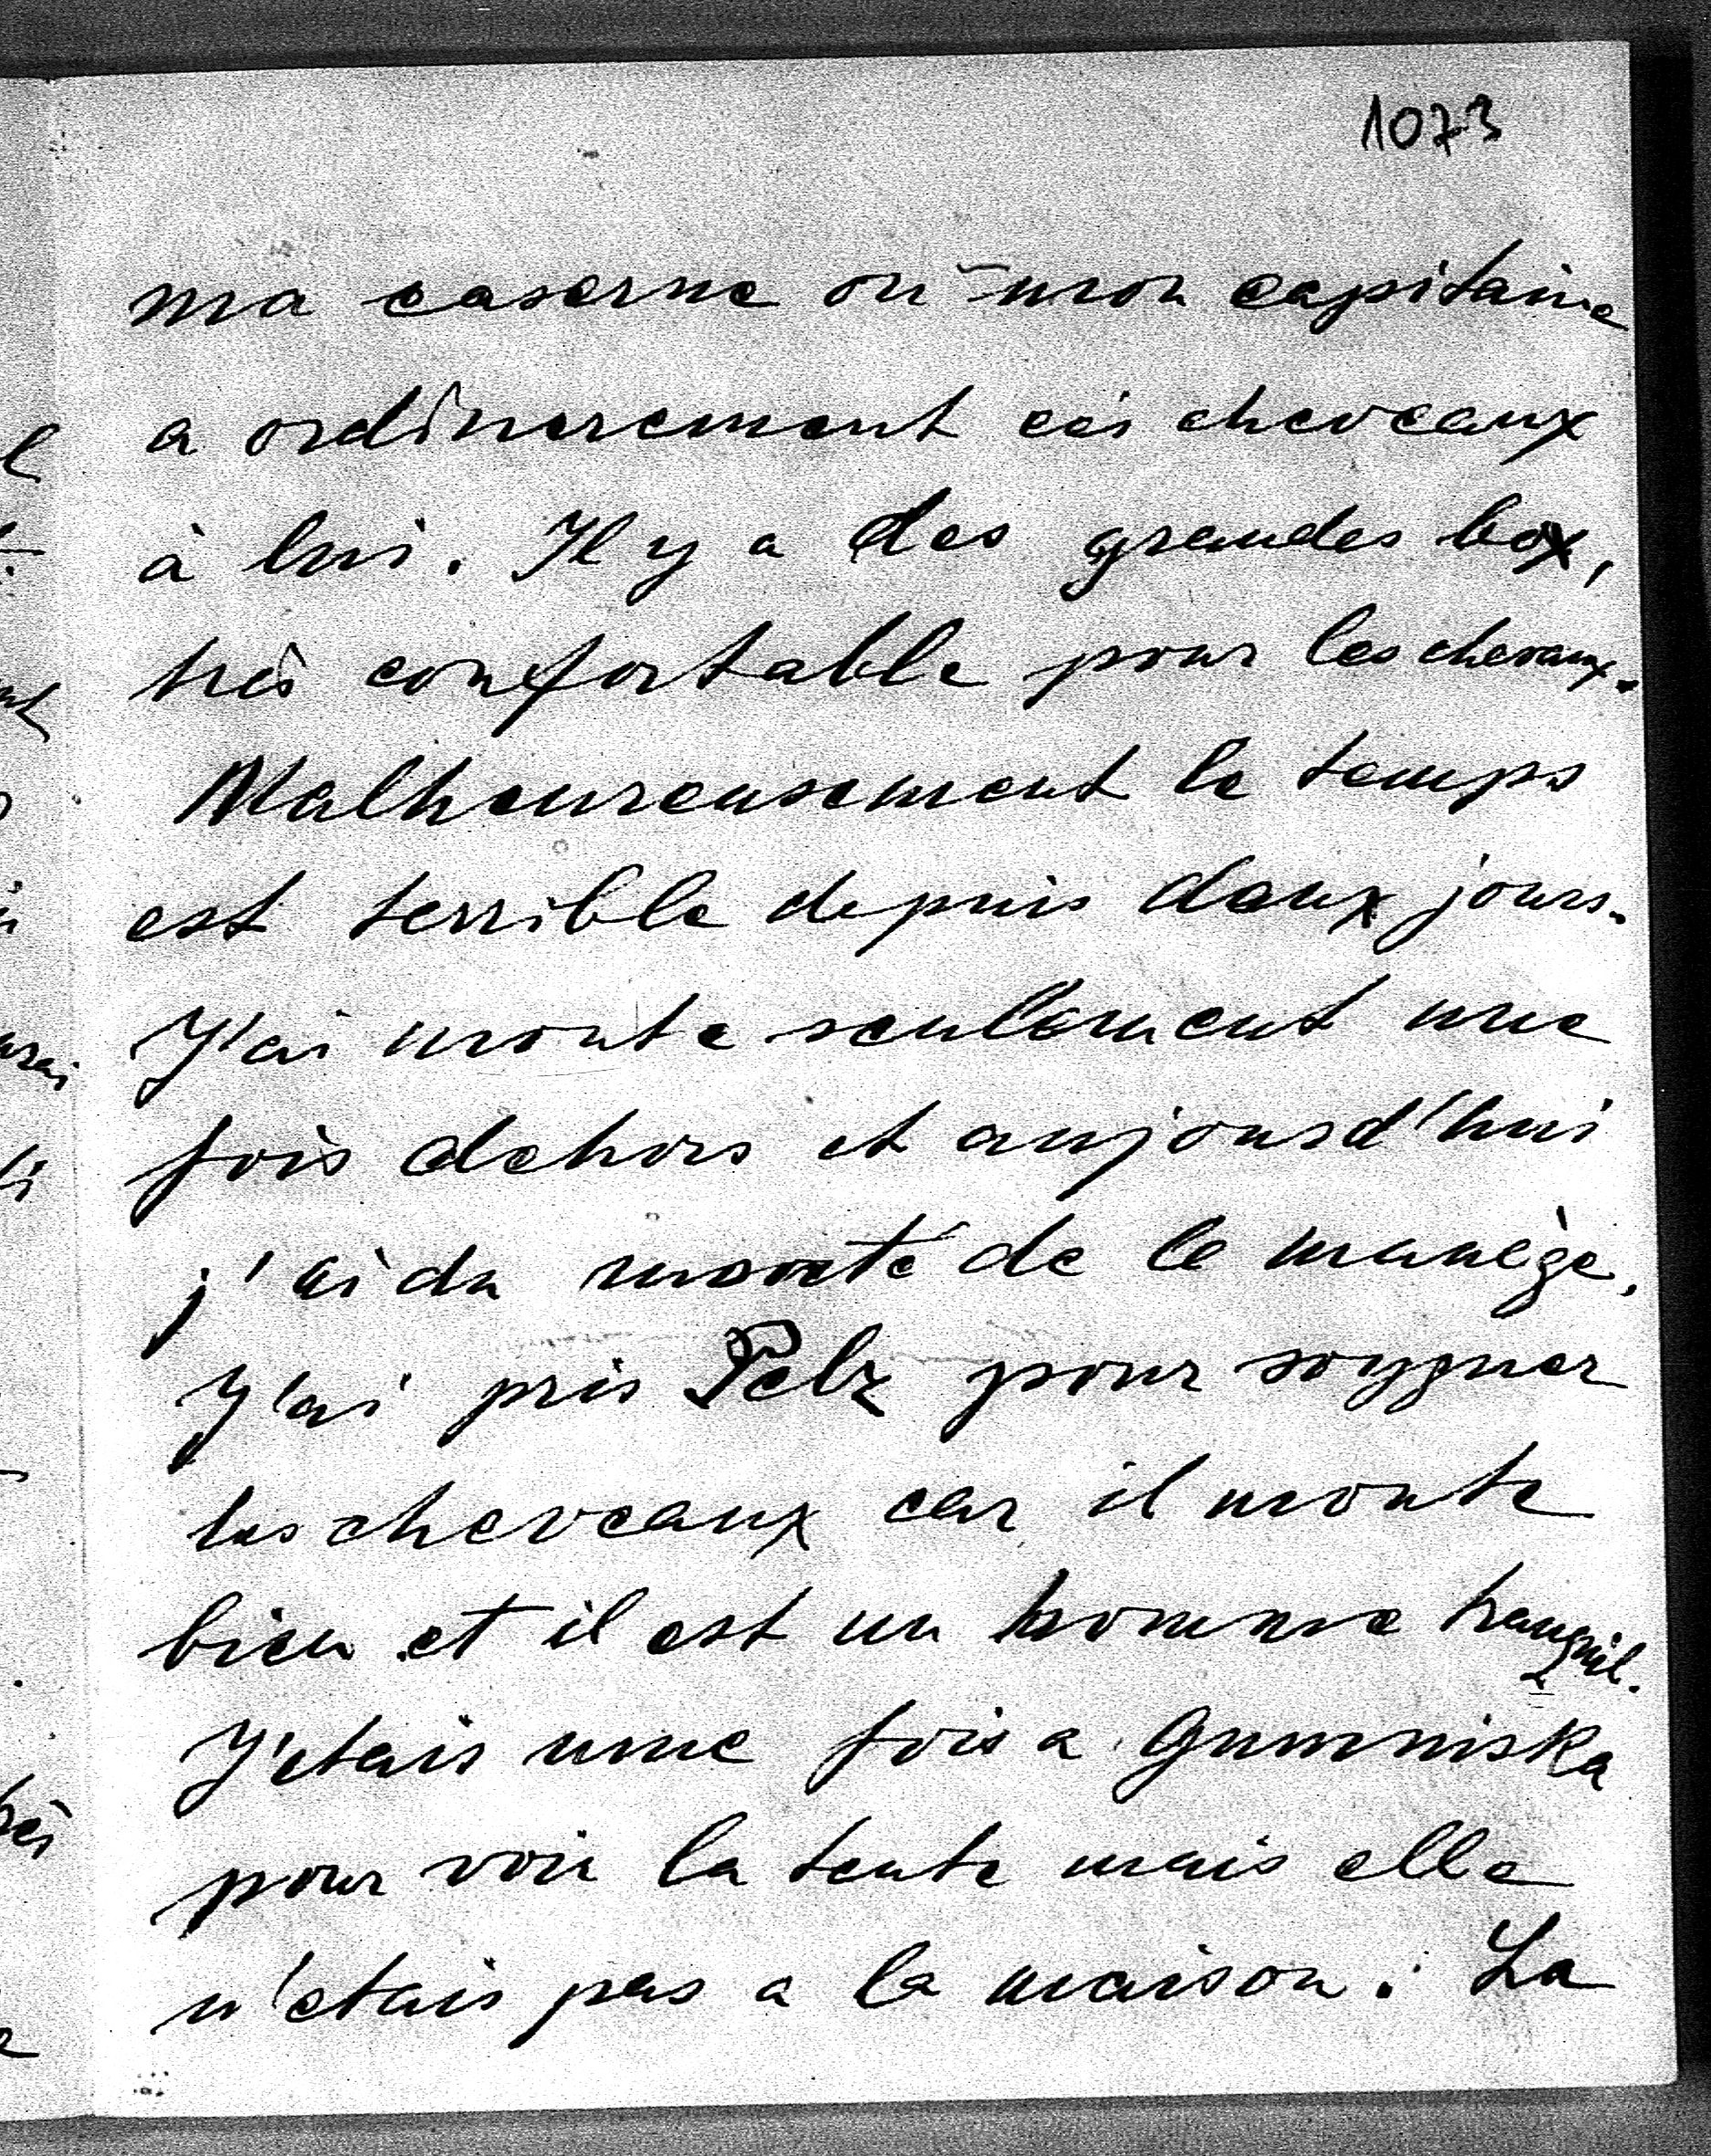 1073
ma caserne ou mon capitaine
a ordinerement ces cheveaux
à lui. Il y a des grandes box,
très confortable pour les chevaux.
Malheureusement le temps
est terrible depuis deux jours.
J'ai monte seulement une
fois dehors et aujoursd'hui
j'ai du monté de le manège.
J'ai pris Pelz pour soygner
les cheveaux car il monte
bien et il est un homme tranquil.
J'etais une fois a Gumniska
pour voir la tente mais elle
n'etais pas a la maison. La